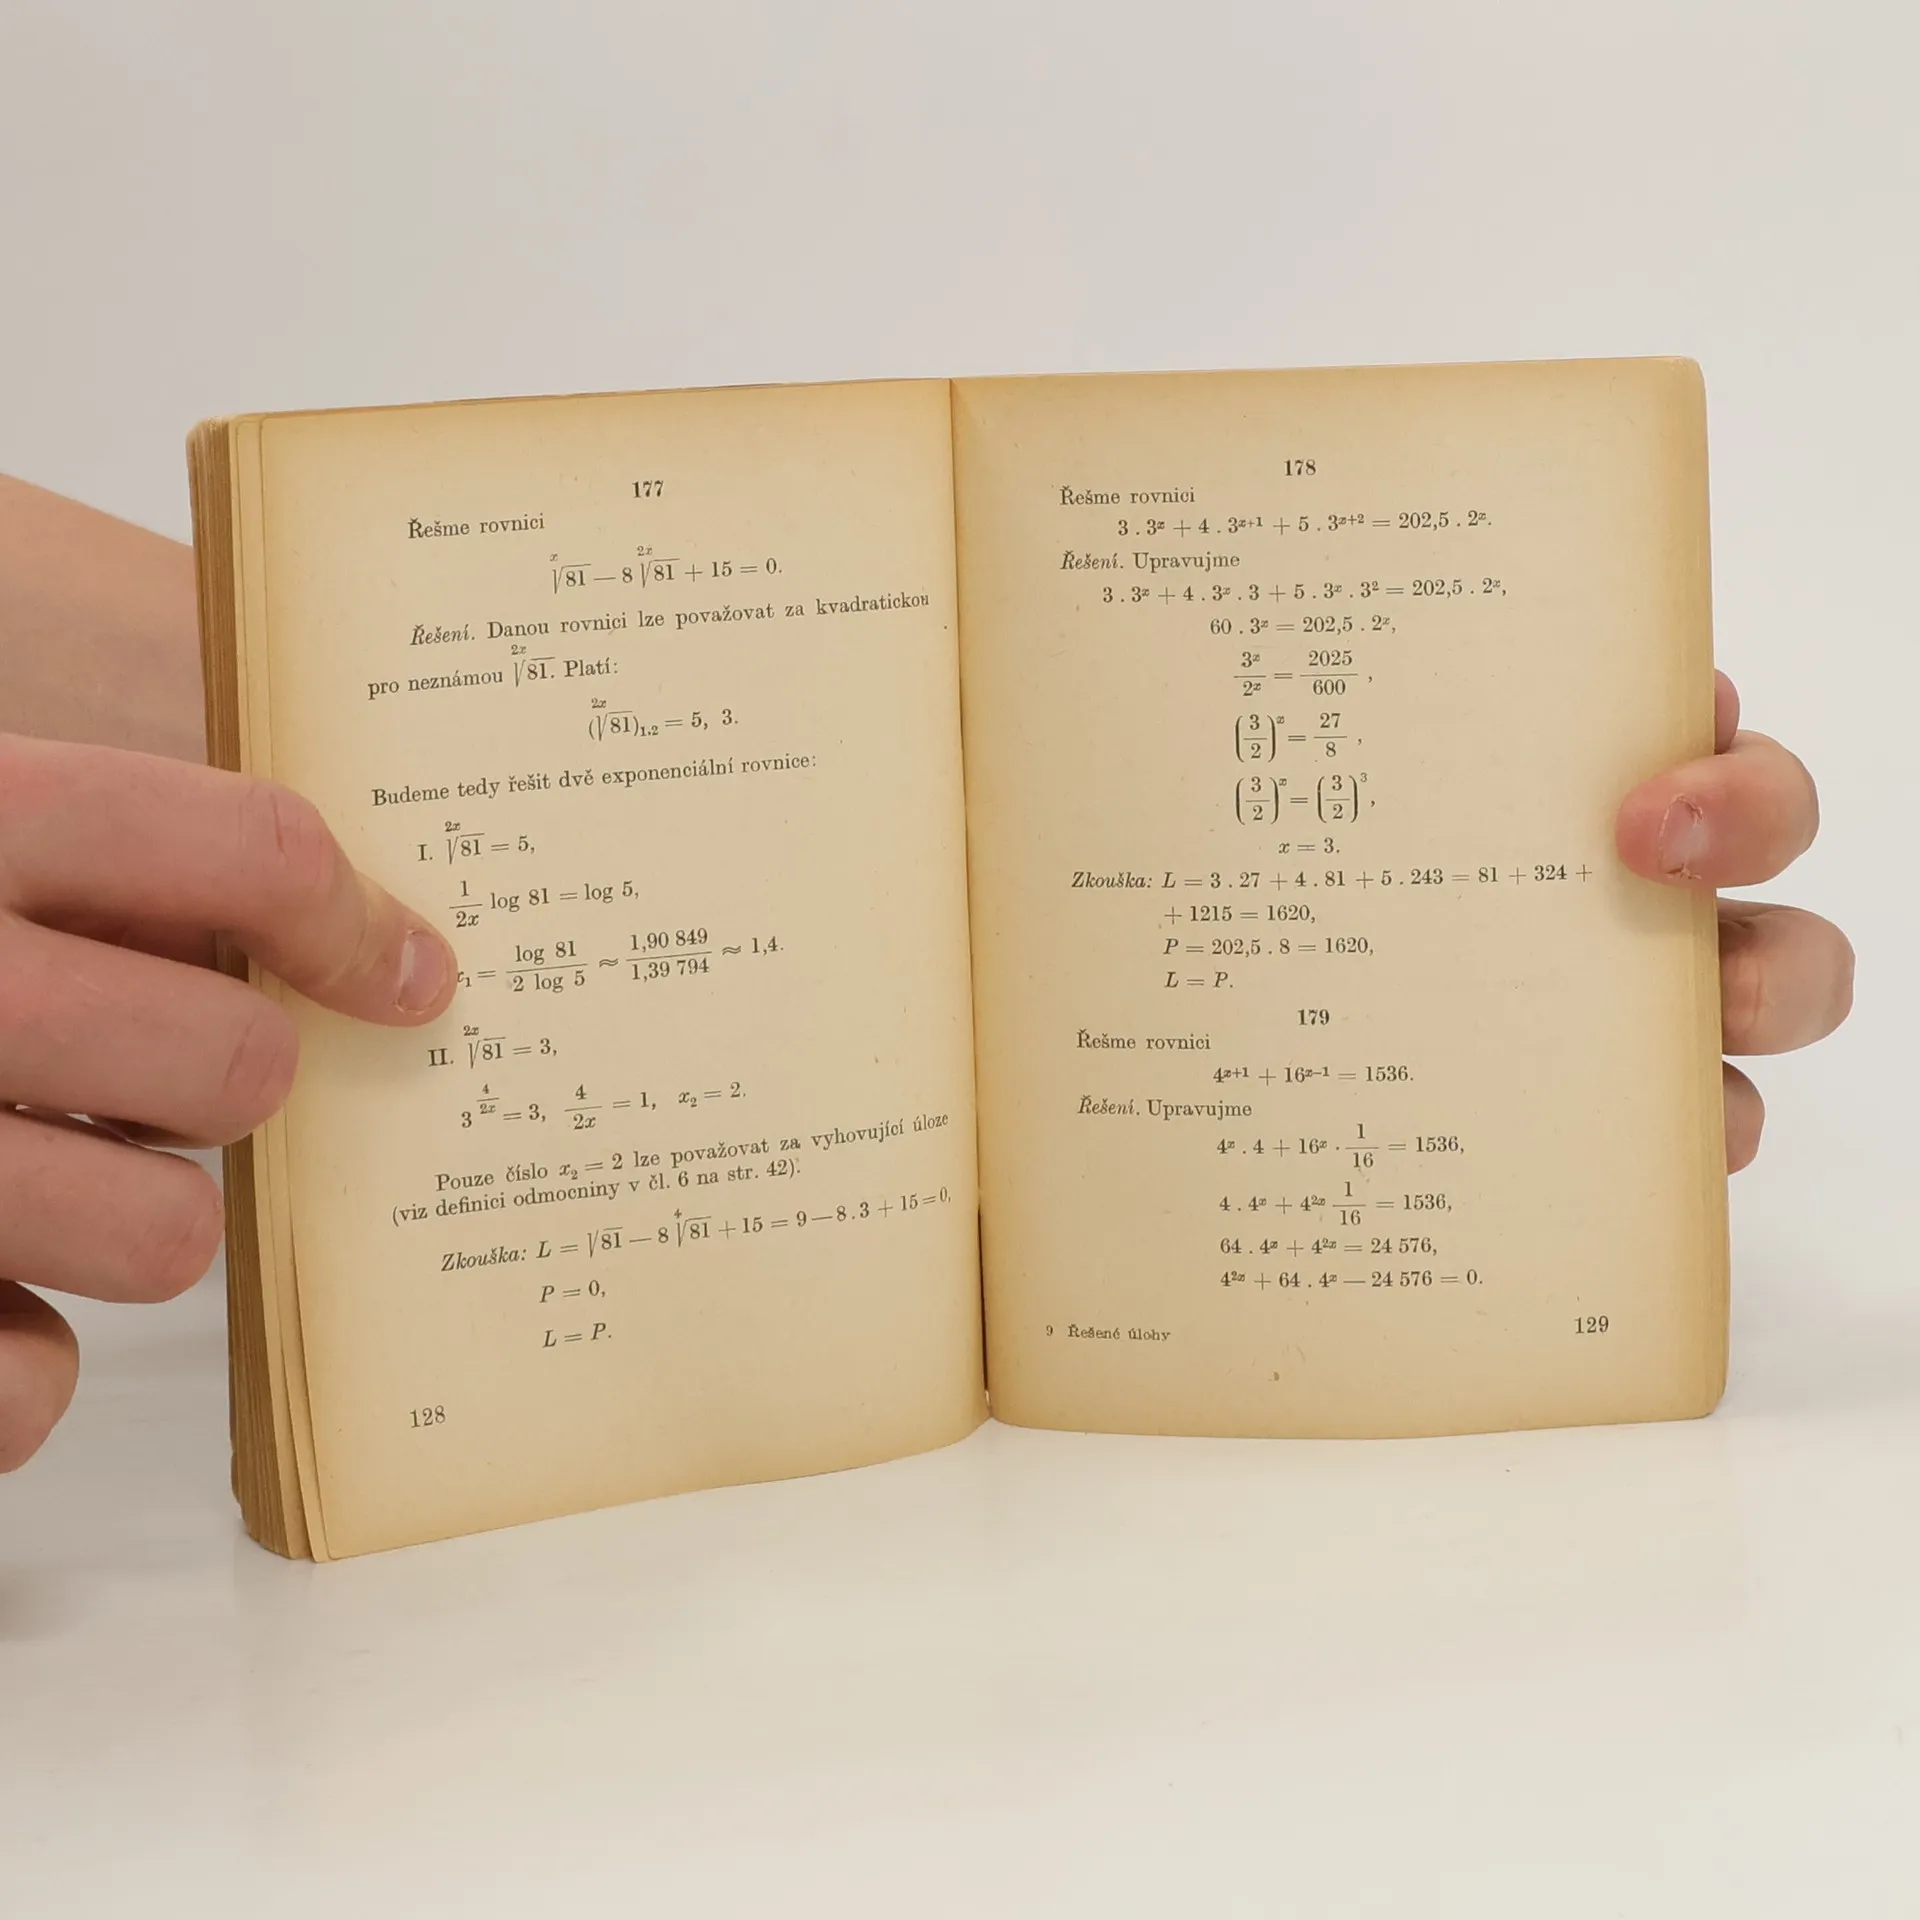 177
Řešme rovnici
\sqrt[x]{81} — 8 \sqrt[2x]{81} + 15 = 0.
Řešení. Danou rovnici lze považovat za kvadratickou
pro neznámou \sqrt[2x]{81}. Platí:
(\sqrt[2x]{81})_{1,2} = 5, 3.
Budeme tedy řešit dvě exponenciální rovnice:
I. \sqrt[2x]{81} = 5,
\frac{1}{2x} log 81 = log 5,
x_1 = \frac{log 81}{2 log 5} ≈ \frac{1,90 849}{1,39 794} ≈ 1,4.
II. \sqrt[2x]{81} = 3,
3^{\frac{4}{2x}} = 3, \frac{4}{2x} = 1, x_2 = 2.
Pouze číslo x_2 = 2 lze považovat za vyhovující úloze
(viz definici odmocniny v čl. 6 na str. 42).
Zkouška: L = \sqrt{81} — 8 \sqrt[4]{81} + 15 = 9 — 8 . 3 + 15 = 0,
P = 0,
L = P.
128
178
Řešme rovnici
3 . 3^x + 4 . 3^{x+1} + 5 . 3^{x+2} = 202,5 . 2^x.
Řešení. Upravujme
3 . 3^x + 4 . 3^x . 3 + 5 . 3^x . 3^2 = 202,5 . 2^x,
60 . 3^x = 202,5 . 2^x,
\frac{3^x}{2^x} = \frac{2025}{600} ,
(\frac{3}{2})^x = \frac{27}{8} ,
(\frac{3}{2})^x = (\frac{3}{2})^3,
x = 3.
Zkouška: L = 3 . 27 + 4 . 81 + 5 . 243 = 81 + 324 +
+ 1215 = 1620,
P = 202,5 . 8 = 1620,
L = P.
179
Řešme rovnici
4^{x+1} + 16^{x—1} = 1536.
Řešení. Upravujme
4^x . 4 + 16^x . \frac{1}{16} = 1536,
4 . 4^x + 4^{2x} \frac{1}{16} = 1536,
64 . 4^x + 4^{2x} = 24 576,
4^{2x} + 64 . 4^x — 24 576 = 0.
9 Řešené úlohy
129